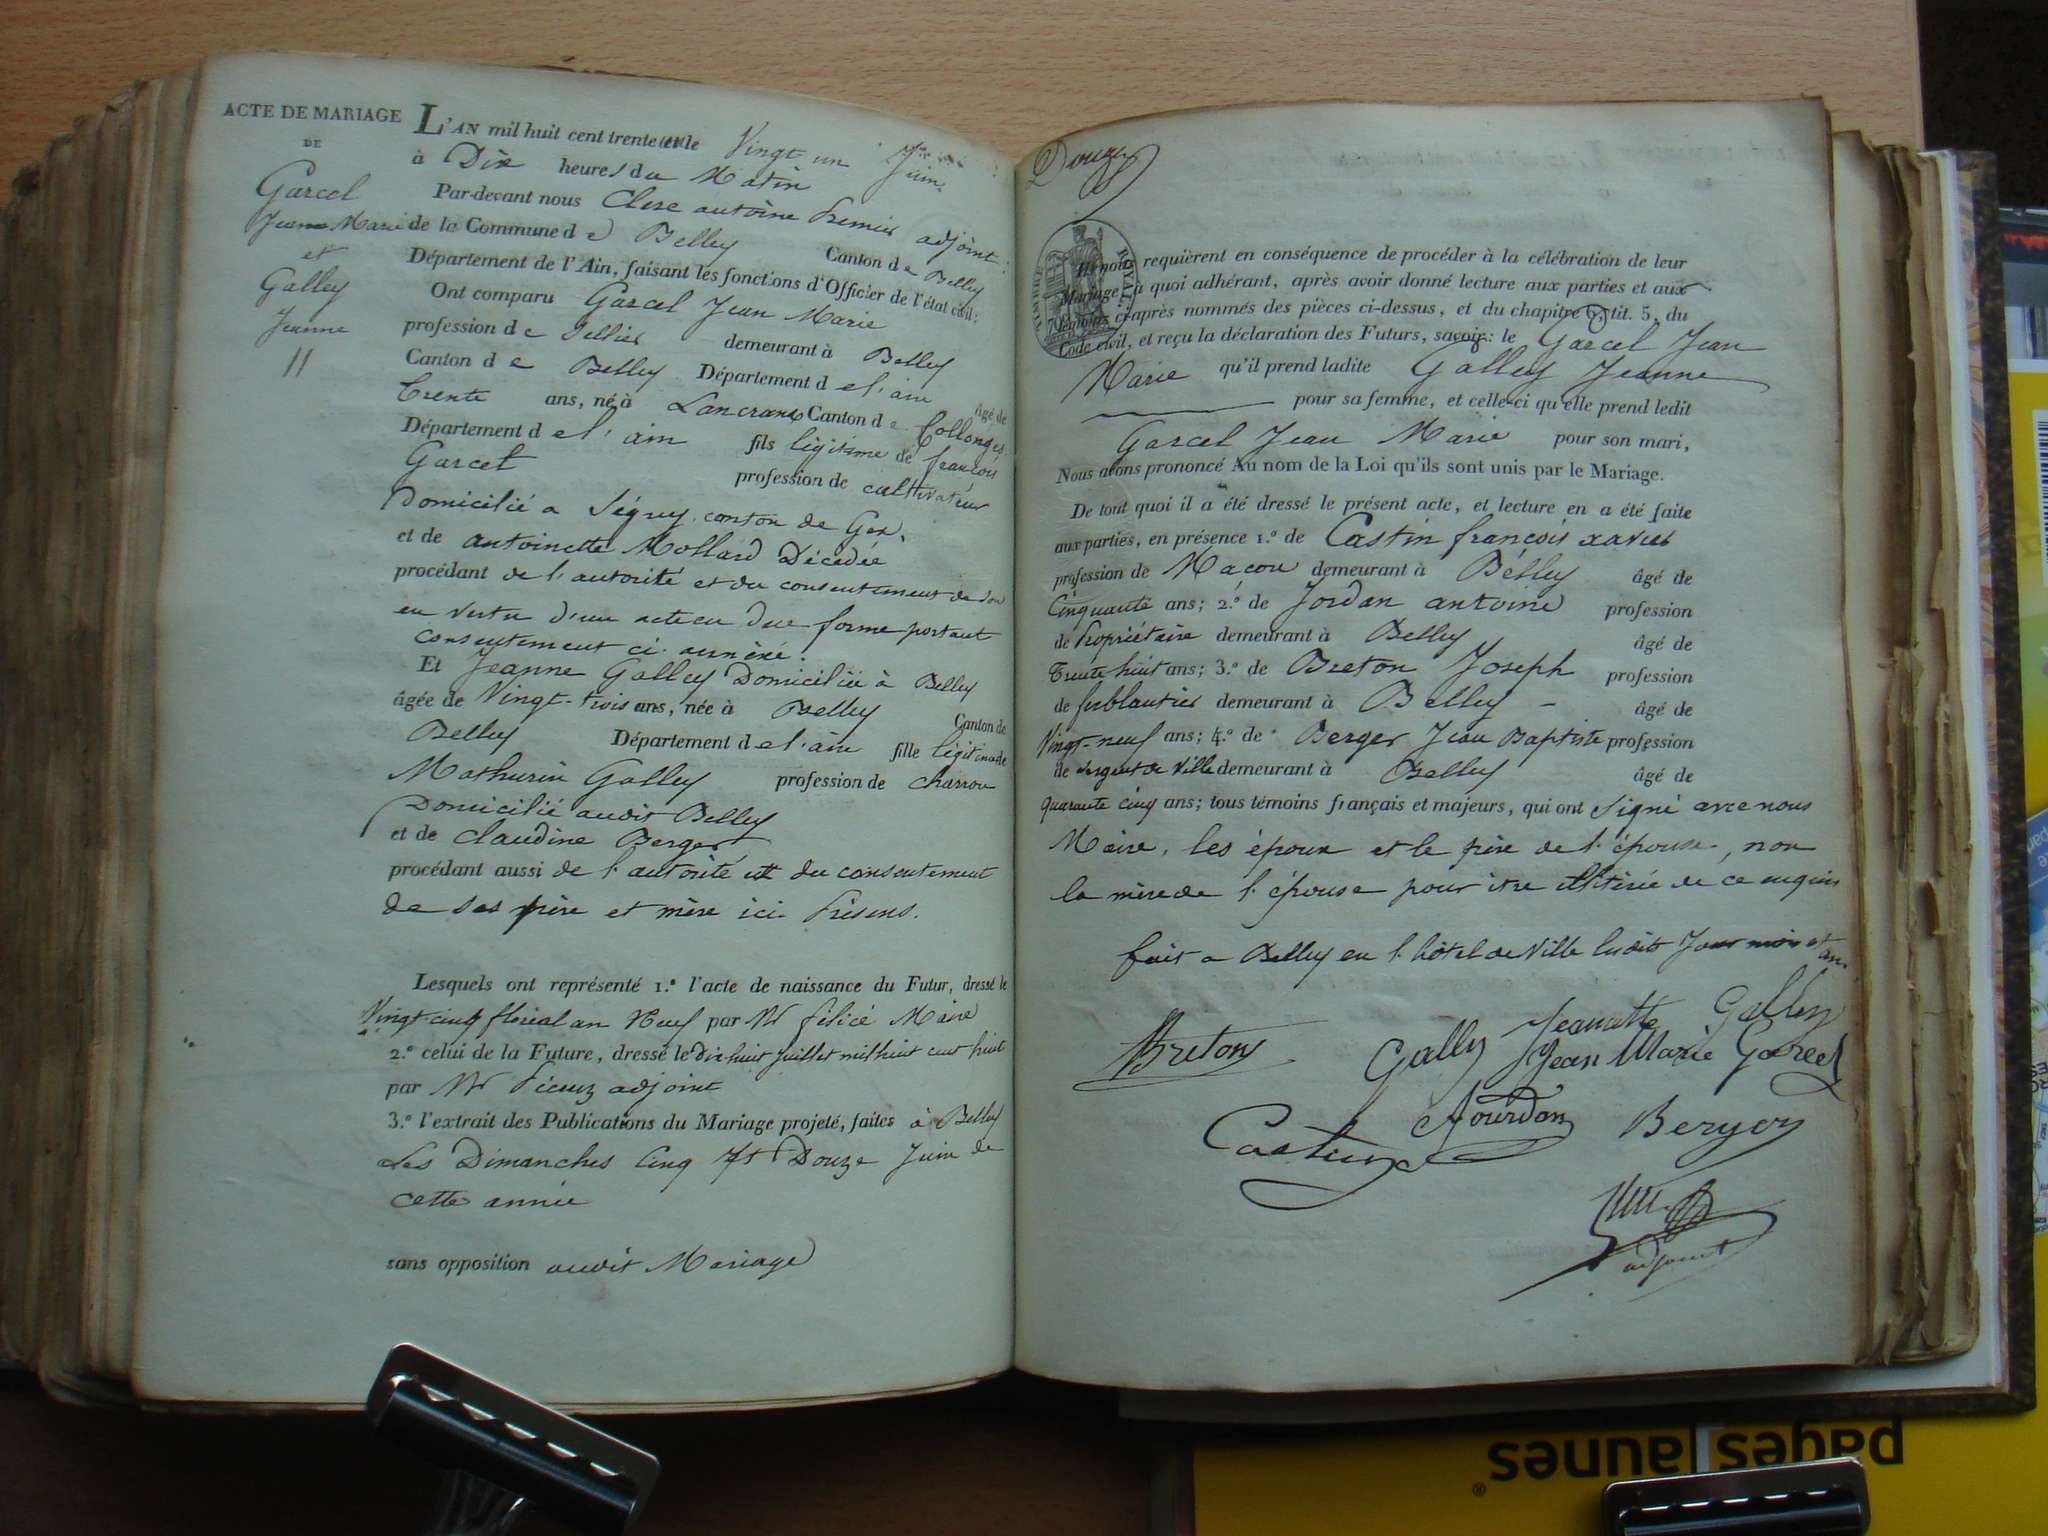 ACTE DE MARIAGE
DE
Garcel
Jean Marie
et
Galley
Jeanne
11
L'AN mil huit cent trente le Vingt un Juin
à Dix heures du Matin
Par-devant nous Clerc antoine Premier adjoint
de la Commune de Belley Canton de Belley
Département de l'Ain, faisant les fonctions d'Officier de l'état civil:
Ont comparu Garcel Jean Marie
profession de Sellier demeurant à Belley
Canton de Belley Département de l'ain âgé de
trente ans, né à Lancrans Canton de Collonges
Département de l'ain fils légitime de françois
Garcel profession de cultivateur
Domicilié a Ségny, canton de Gex,
et de antoinette Mollard Décédée
procédant de l'autorité et du consentement de son
en vertu d'un acte en due forme portant
consentement ci annéxé.
Et Jeanne Galley Domiciliée à Belley
âgée de Vingt-trois ans, née à Belley Canton de
Belley Département de l'ain fille légitime de
Mathurin Galley profession de charron
Domicilié audit Belley
et de claudine Berger
procédant aussi de l'autorité et du consentement
de ses père et mère ici Présens.
Lesquels ont représenté 1.º l'acte de naissance du Futur, dressé le
Vingt cinq floréal an Neuf par Mr félicé Maire
2.º celui de la Future, dressé le dix huit Juillet mil huit cent huit
par Mr adjoint
3.º l'extrait des Publications du Mariage projeté, faites à Belley
Les Dimanches Cinq et Douze Juin de
cette année
sans opposition audit Mariage
Douze
TIMBRE ROYAL
Ils nous requièrent en conséquence de procéder à la célébration de leur
Mariage; à quoi adhérant, après avoir donné lecture aux parties et aux
Témoins ci-après nommés des pièces ci-dessus, et du chapitre 6, tit. 5, du
Code civil, et reçu la déclaration des Futurs, savoir: le Garcel Jean
Marie qu'il prend ladite Galley Jeanne
pour sa femme, et celle-ci qu'elle prend ledit
Garcel Jean Marie pour son mari,
Nous avons prononcé Au nom de la Loi qu'ils sont unis par le Mariage.
De tout quoi il a été dressé le présent acte, et lecture en a été faite
aux parties, en présence 1.º de Castin françois xavier
profession de Maçon demeurant à Belley âgé de
Cinquante ans; 2.º de Jordan antoine profession
de Propriétaire demeurant à Belley âgé de
Trente huit ans; 3.º de Breton Joseph profession
de ferblantier demeurant à Belley - âgé de
Vingt-neuf ans; 4.º de Berger Jean Baptiste profession
de sergent de Ville demeurant à Belley âgé de
quarante cinq ans; tous témoins français et majeurs, qui ont signé avec nous
Maire, les époux et le père de l'épouse, non
la mère de l'épouse pour être illitérée de ce enquis
fait a Belley en l'hôtel de Ville lesdits Jour mois et an.
Breton Gally Jeanette Galley
Jean Marie Garcel
Castin Jourdan Berger
adjoint
pages jaunes